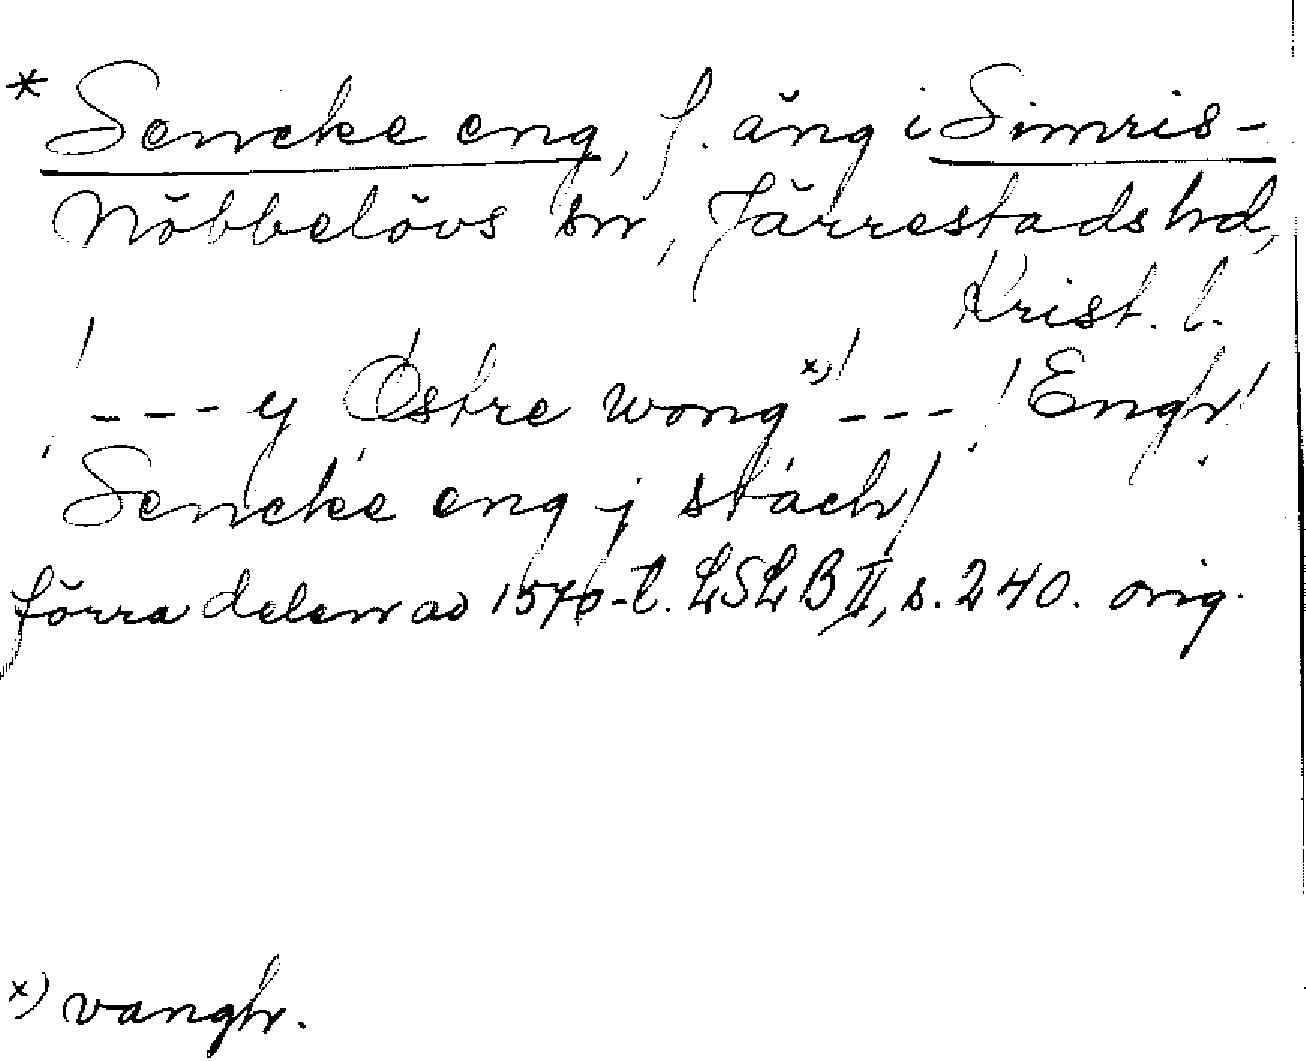 * Sencke eng, f. äng i Simris-
Nöbbelövs sn, Järrestads hd,
Krist. l.
! --- y Östre wong x) ! --- ! Engr !
Sencke eng j stäck/
förra delen av 1570-t. LSLB II, s. 240. orig.
x) vangr.